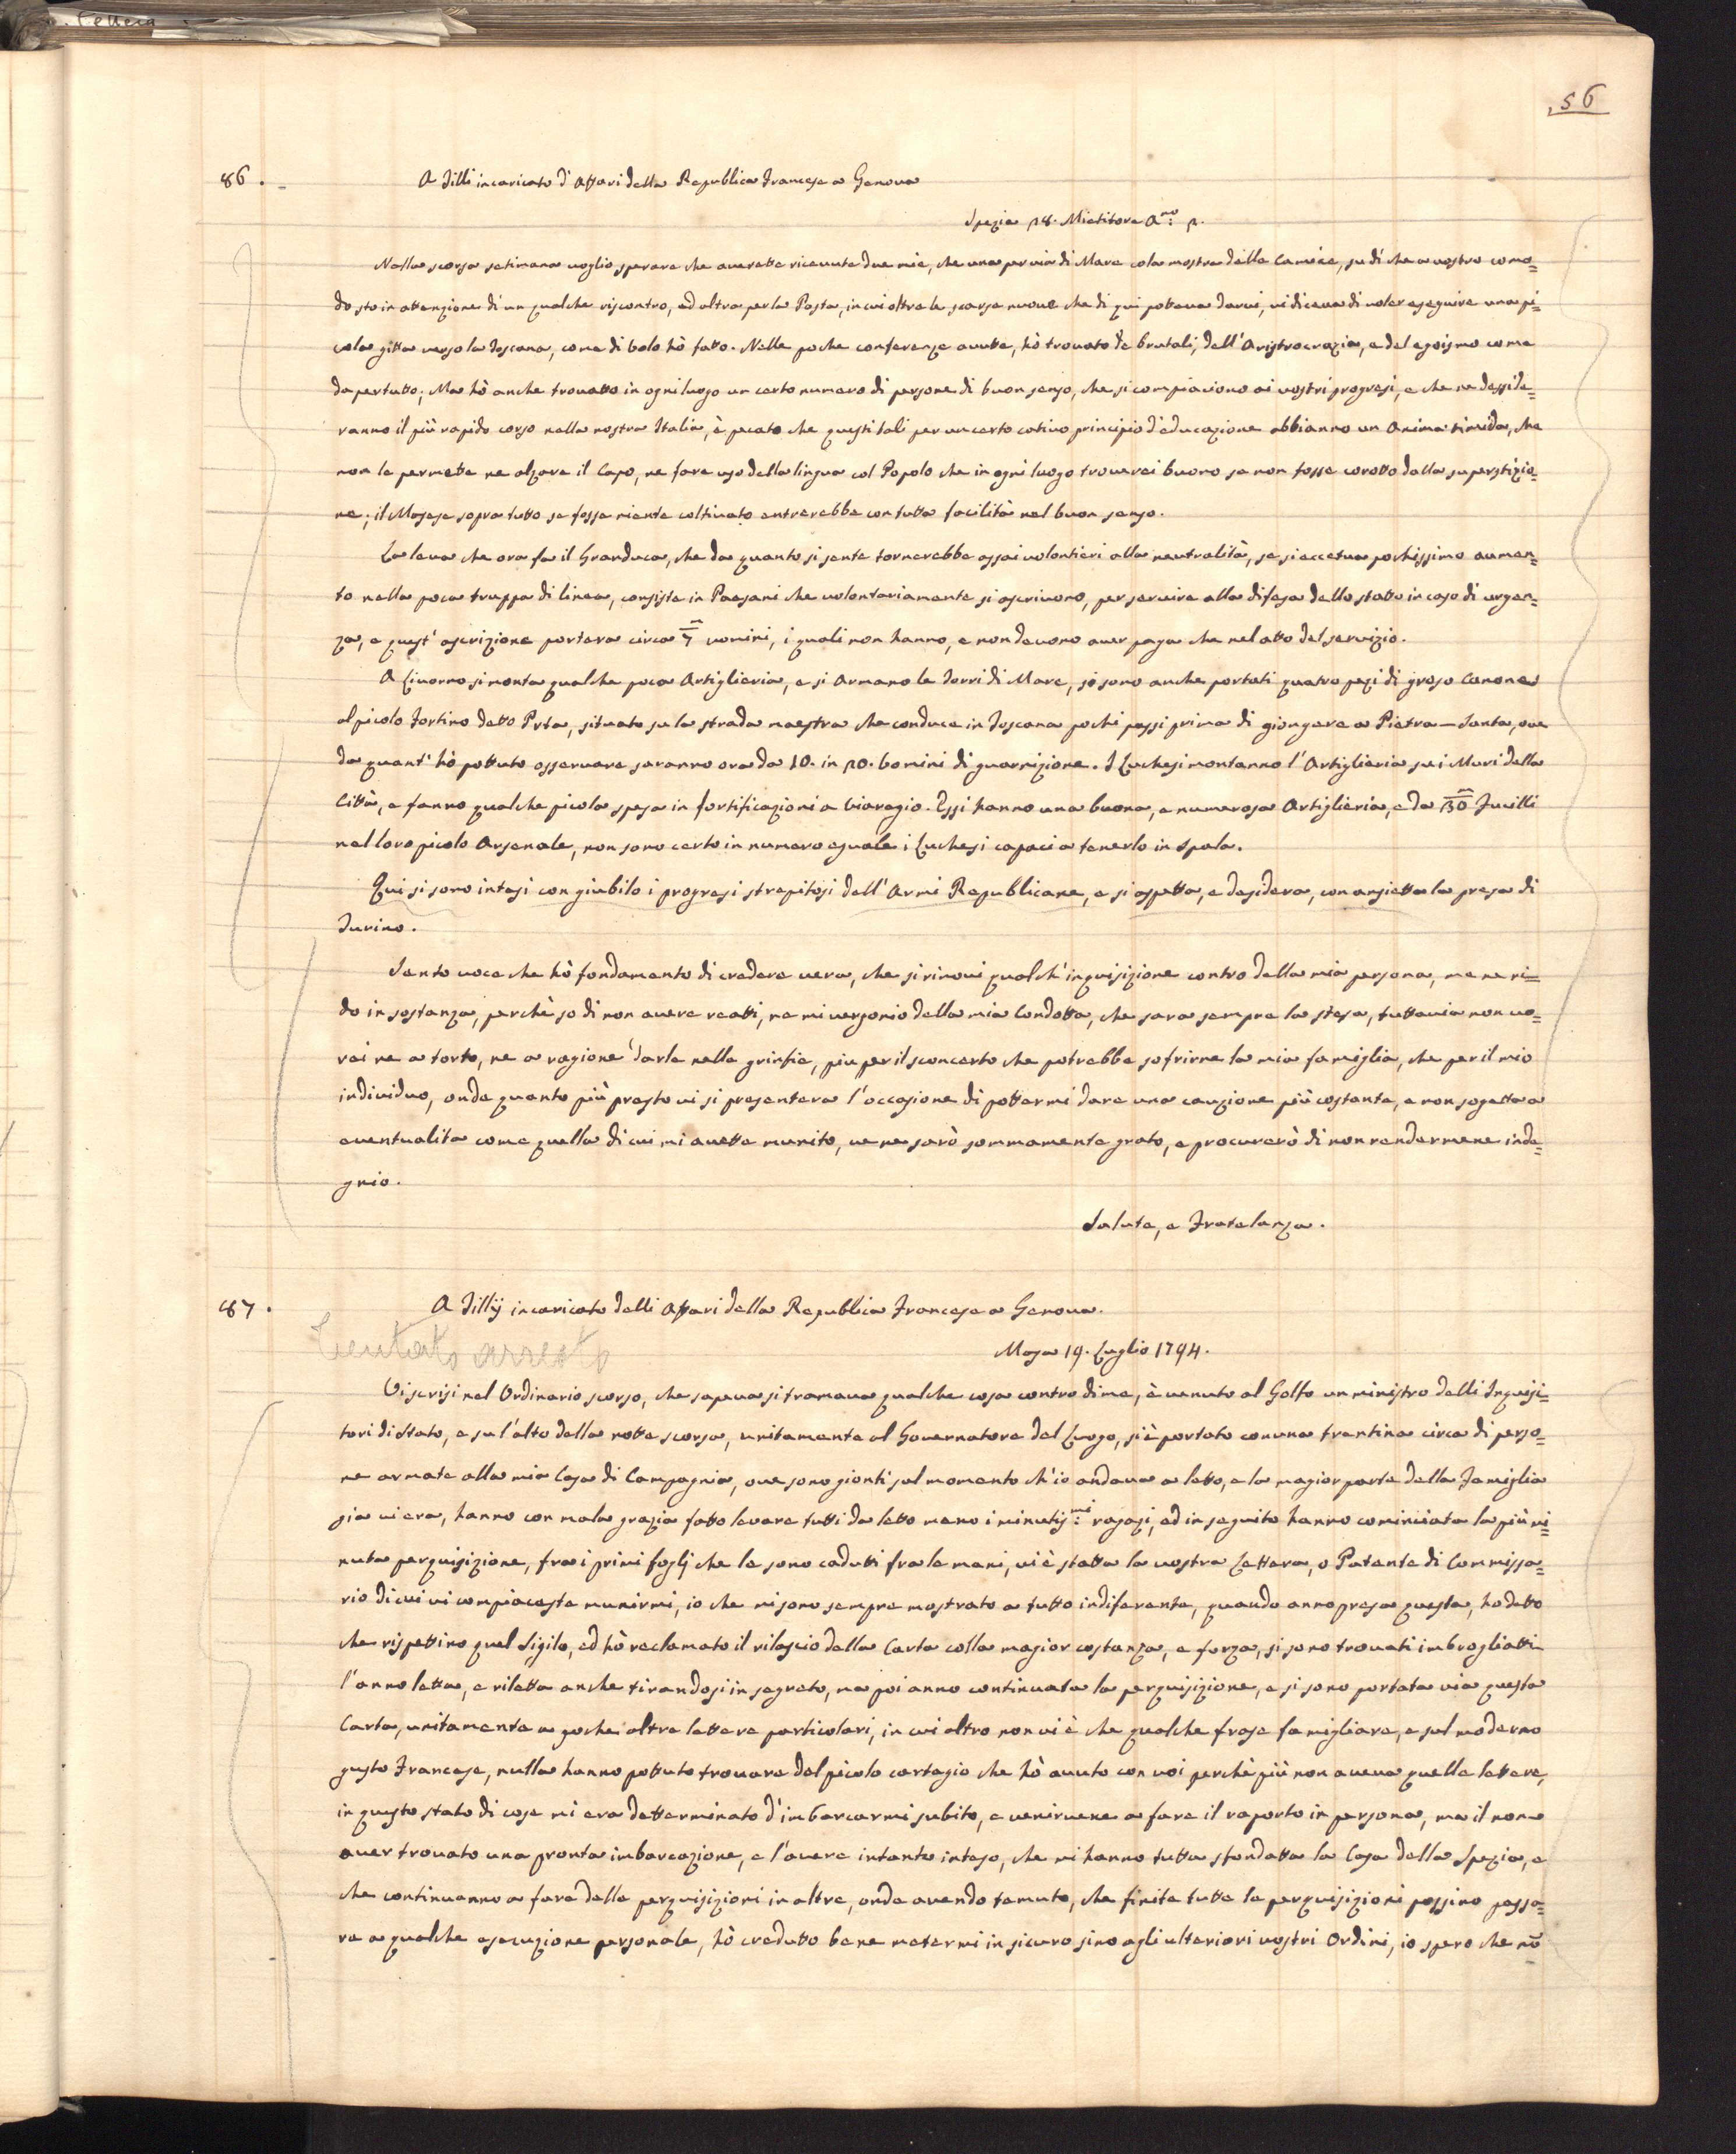 Lettera
56
86. A Tilli incaricato d'Affari della Republica Francese a Genova
Spezia 28. Mietitore A.no 2.
Nella scorsa setimana voglio sperare che averette ricevute due mie, che una per via di Mare cola mostra delle Camice, su di che a vostro como=
do sto in attenzione di un qualche riscontro, ed altra per la Posta, in cui oltre le scarse nuove che di qui potteva darvi, vi diceva di voler eseguire una pi=
cola gitta verso la Toscana, come di volo hò fatto. Nelle poche conferenze avutte, hò trovato de brutali, dell'Aristrocrazia, e del egoismo come
da per tutto; Ma hò anche trovatto in ogni luogo un certo numero di persone di buon senso, che si compiaciono ai vostri progresi, e che ne desside=
ranno il più rapido corso nella nostra Italia, è pecato che questi tali per un certo cativo principio d'educazione abbianno un Anima timida, che
non le permette ne alzare il Capo, ne fare uso della lingua col Popolo che in ogni luogo troverei buono se non fosse corotto dalla superstizio=
ne; il Masese sopra tutto se fosse niente coltivato entrerebbe con tutta facilità nel buon senso.
La leva che ora fa il Granduca, che da quanto si sente tornerebbe assai volontieri alla neutralità, se si eccetua pochissimo aumen=
to nella poca truppa di linea, consiste in Paesani che volontariamente si ascrivono, per servire alla difesa dello statto in caso di urgen=
za, e quest'ascrizione portera circa 7m uomini, i quali non hanno, e non devono aver paga che nel atto del servizio.
A Livorno si monta qualche poca Artiglieria, e si Armano le Torri di Mare, si sono anche portati quatro pezi di groso Canone
al picolo Fortino detto Prta, situato su la strada maestra che conduce in Toscana pochi passi prima di giongere a Pietra-Santa, ove
da quant'hò pottuto osservare saranno ora da 10. in 20. bomini di guarnizione. I Luchesi montanno l'Artiglieria su i Muri della
Città, e fanno qualche picola spesa in fortificazioni a Viaregio. Essi hanno una buona, e numerosa Artiglieria, e da 30m Fucilli
nel loro picolo Arsenale, non sono certo in numero eguale i Luchesi capaci a tenerlo in spala.
Qui si sono intesi con giubilo i progresi strepitosi dell'Armi Republicane, e si aspetta, e desidera, con ansietta la presa di
Turino.
Sento voce che hò fondamento di credere vera, che si rinovi qualch'inquisizione contro della mia persona, me ne ri=
do in sostanza, perchè so di non avere reatti, ne mi vergonio della mia Condotta, che sara sempre la stesa, tuttavia non vo=
rei ne a torto, ne a ragione darle nelle grinfie, più per il sconcerto che potrebbe sofrirne la mia famiglia, che per il mio
individuo, onde quanto più presto vi si presentera l'occasione di pottermi dare una cauzione più costante, e non sogetta a
eventualita come quella di cui mi avette munito, ve ne sarò sommamente grato, e procurerò di non rendermene inde=
gnio.
Salute, e Fratelanza.
87. A Tillij incaricato delli Affari della Republica Francese a Genova.
Tentato arresto
Masa 19. Luglio 1794.
Vi scrisi nel Ordinario scorso, che sapeva si tramava qualche cosa contro di me, è venuto al Golfo un ministro delli Inquisi=
tori di Stato, e su l'alto della notte scorsa, unitamente al Governatore del Luogo, si è portato con una trentina circa di perso=
ne armate alla mia Casa di Campagnia, ove sono gionti sul momento ch'io andava a letto, e la magior parte della Famiglia
gia vi era, hanno con mala grazia fatto levare tutti da letto meno i minutij:mi ragazi, ed in seguito hanno cominciata la più mi=
nuta perquisizione, fra i primi foglj che le sono cadutti fra le mani, vi è statta la vostra Lettera, o Patente di Commissa=
rio di cui vi compiaceste munirmi, io che mi sono sempre mostrato a tutto indiferente, quando anno presa questa, ho detto
che rispettino quel Sigilo, ed hò reclamato il rilascio della Carta colla magior costanza, e forza, si sono trovati imbrogliatti
l'anno letta, e riletta anche tirandosi in segreto, ma poi anno continuata la perquisizione, e si sono portata via questa
Carta, unitamente a poche altre lettere particolari, in cui altro non vi è che qualche frase famigliare, e sul moderno
gusto Francese, nulla hanno pottuto trovare del picolo cartegio che hò avuto con voi perchè più non aveva quelle lettere,
in questo stato di cose mi era detterminato d'imbarcarmi subito, e venirvene a fare il raporto in persona, ma il non
aver trovato una pronta imbarcazione, e l'avere intanto inteso, che mi hanno tutta sfondatta la Casa della Spezia, e
che continuanno a fare delle perquisizioni in altre, onde avendo temuto, che finite tutte le perquisizioni possino passa=
re a qualche esecuzione personale, hò credutto bene metermi in sicuro sino agli ulteriori vostri Ordini, io spero che nō